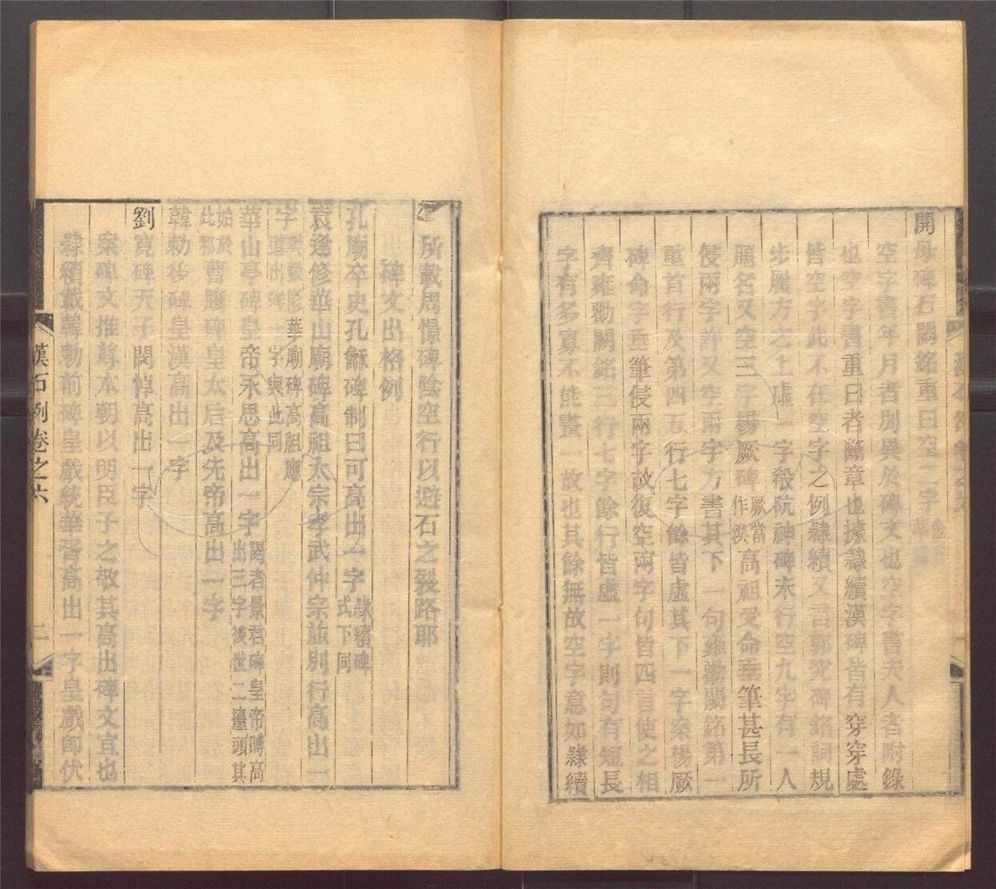 開母碑石闕銘重曰空二字
空字書年月者別異於碑文也空字書夫人者附錄
也空字書重曰者斷章也據隸續漢碑皆有穿穿處
皆空字此不在空字之例隸續又言郭究碑銘詞規
步履方之上虛一字殽阬神碑末行空九字有一人
題名又空三字楊厥碑厥當作獗高祖受命垂筆甚長所
侵兩字許又空兩字方書其下一句雍勸闕銘第一
重首行及第四五行七字餘皆虛其下一字案楊厥
碑命字垂筆侵兩字故復空兩字句皆四言使之相
齊雍勸闕銘三行七字餘行皆虛一字則句有短長
字有多寡不能畫一故也其餘無故空字意如隸續
所載周憬碑陰空行以避石之裂路耶
碑文出格例
孔廟卒史孔龢碑制曰可高出一字隸續碑式下同
袁逢修華山廟碑高祖太宗孝武仲宗並別行高出一
字華廟碑高祖應字與此同
華山亭碑皇帝永思高出一字闕者景君碑皇帝時高出三字後世二擡頭其
始於此邪曹騰碑皇太后及先帝高出一字
韓勅後碑皇漢高出一字
劉寬碑天子閔悼高出一字
案碑文推尊本朝以明臣子之敬其高出碑文宜也
隸續載韓勅前碑皇戲統華胥高出一字皇戲即伏
漢石例卷之六
二